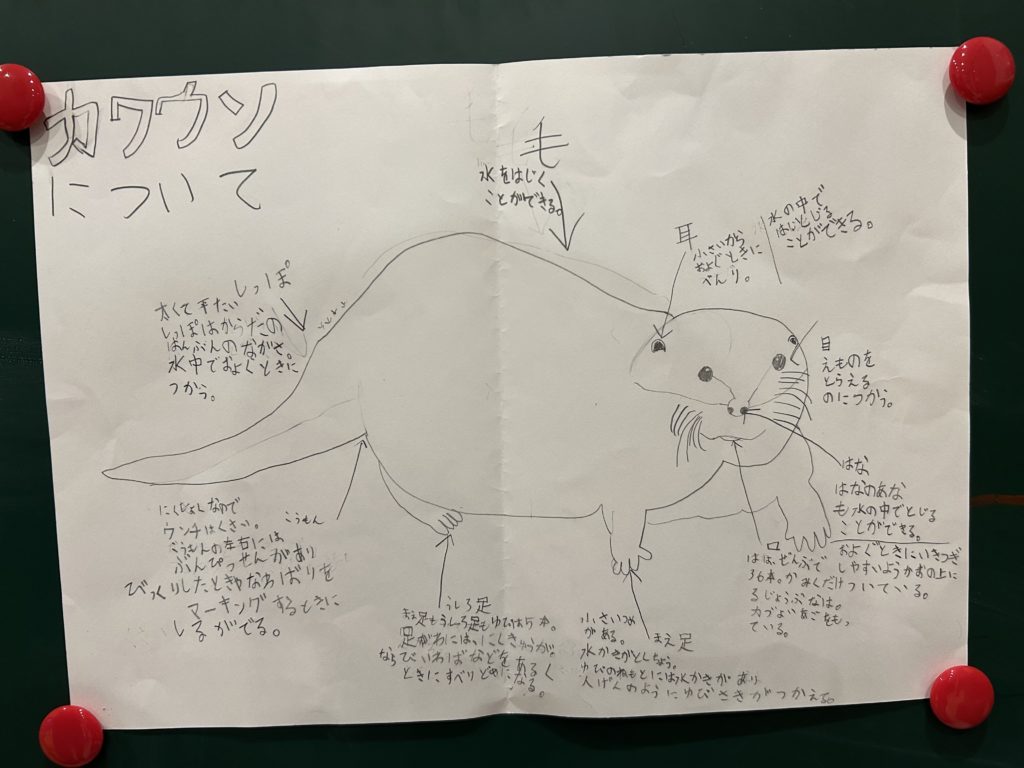 カワウソ
について
毛
水をはじく
ことができる。
耳
小さいから
およぐときに
べんり。
水の中で
はいとじる
ことができる。
しっぽ
太くて平たい
しっぽはからだの
はんぶんのながさ。
水中でおよぐときに
つかう。
目
えものを
とらえる
のにつかう。
はな
はなのあな
も水の中でとじる
ことができる。
およぐときにいきつぎ
しやすいようかおの上に
ついている。
口
はは、ぜんぶで
36本。かみくだけ
るじょうぶなは。
力づよいあごをもっ
ている。
こうもん
にくしょくなので
ウンチはくさい。
こうもんの左右には
ぶんぴっせんがあり
びっくりしたときやなわばりを
マーキングするときに
しるがでる。
うしろ足
まえ足もうしろ足もゆびは5本。
足がわには、にくきゅうが。
ならびいわばなどをあるく
ときにすべりどめになる。
まえ足
小さいつめ
がある。
水かきがとくちょう。
ゆびのねもとには水かきがあり
人げんのようにゆびさきがつかえる。